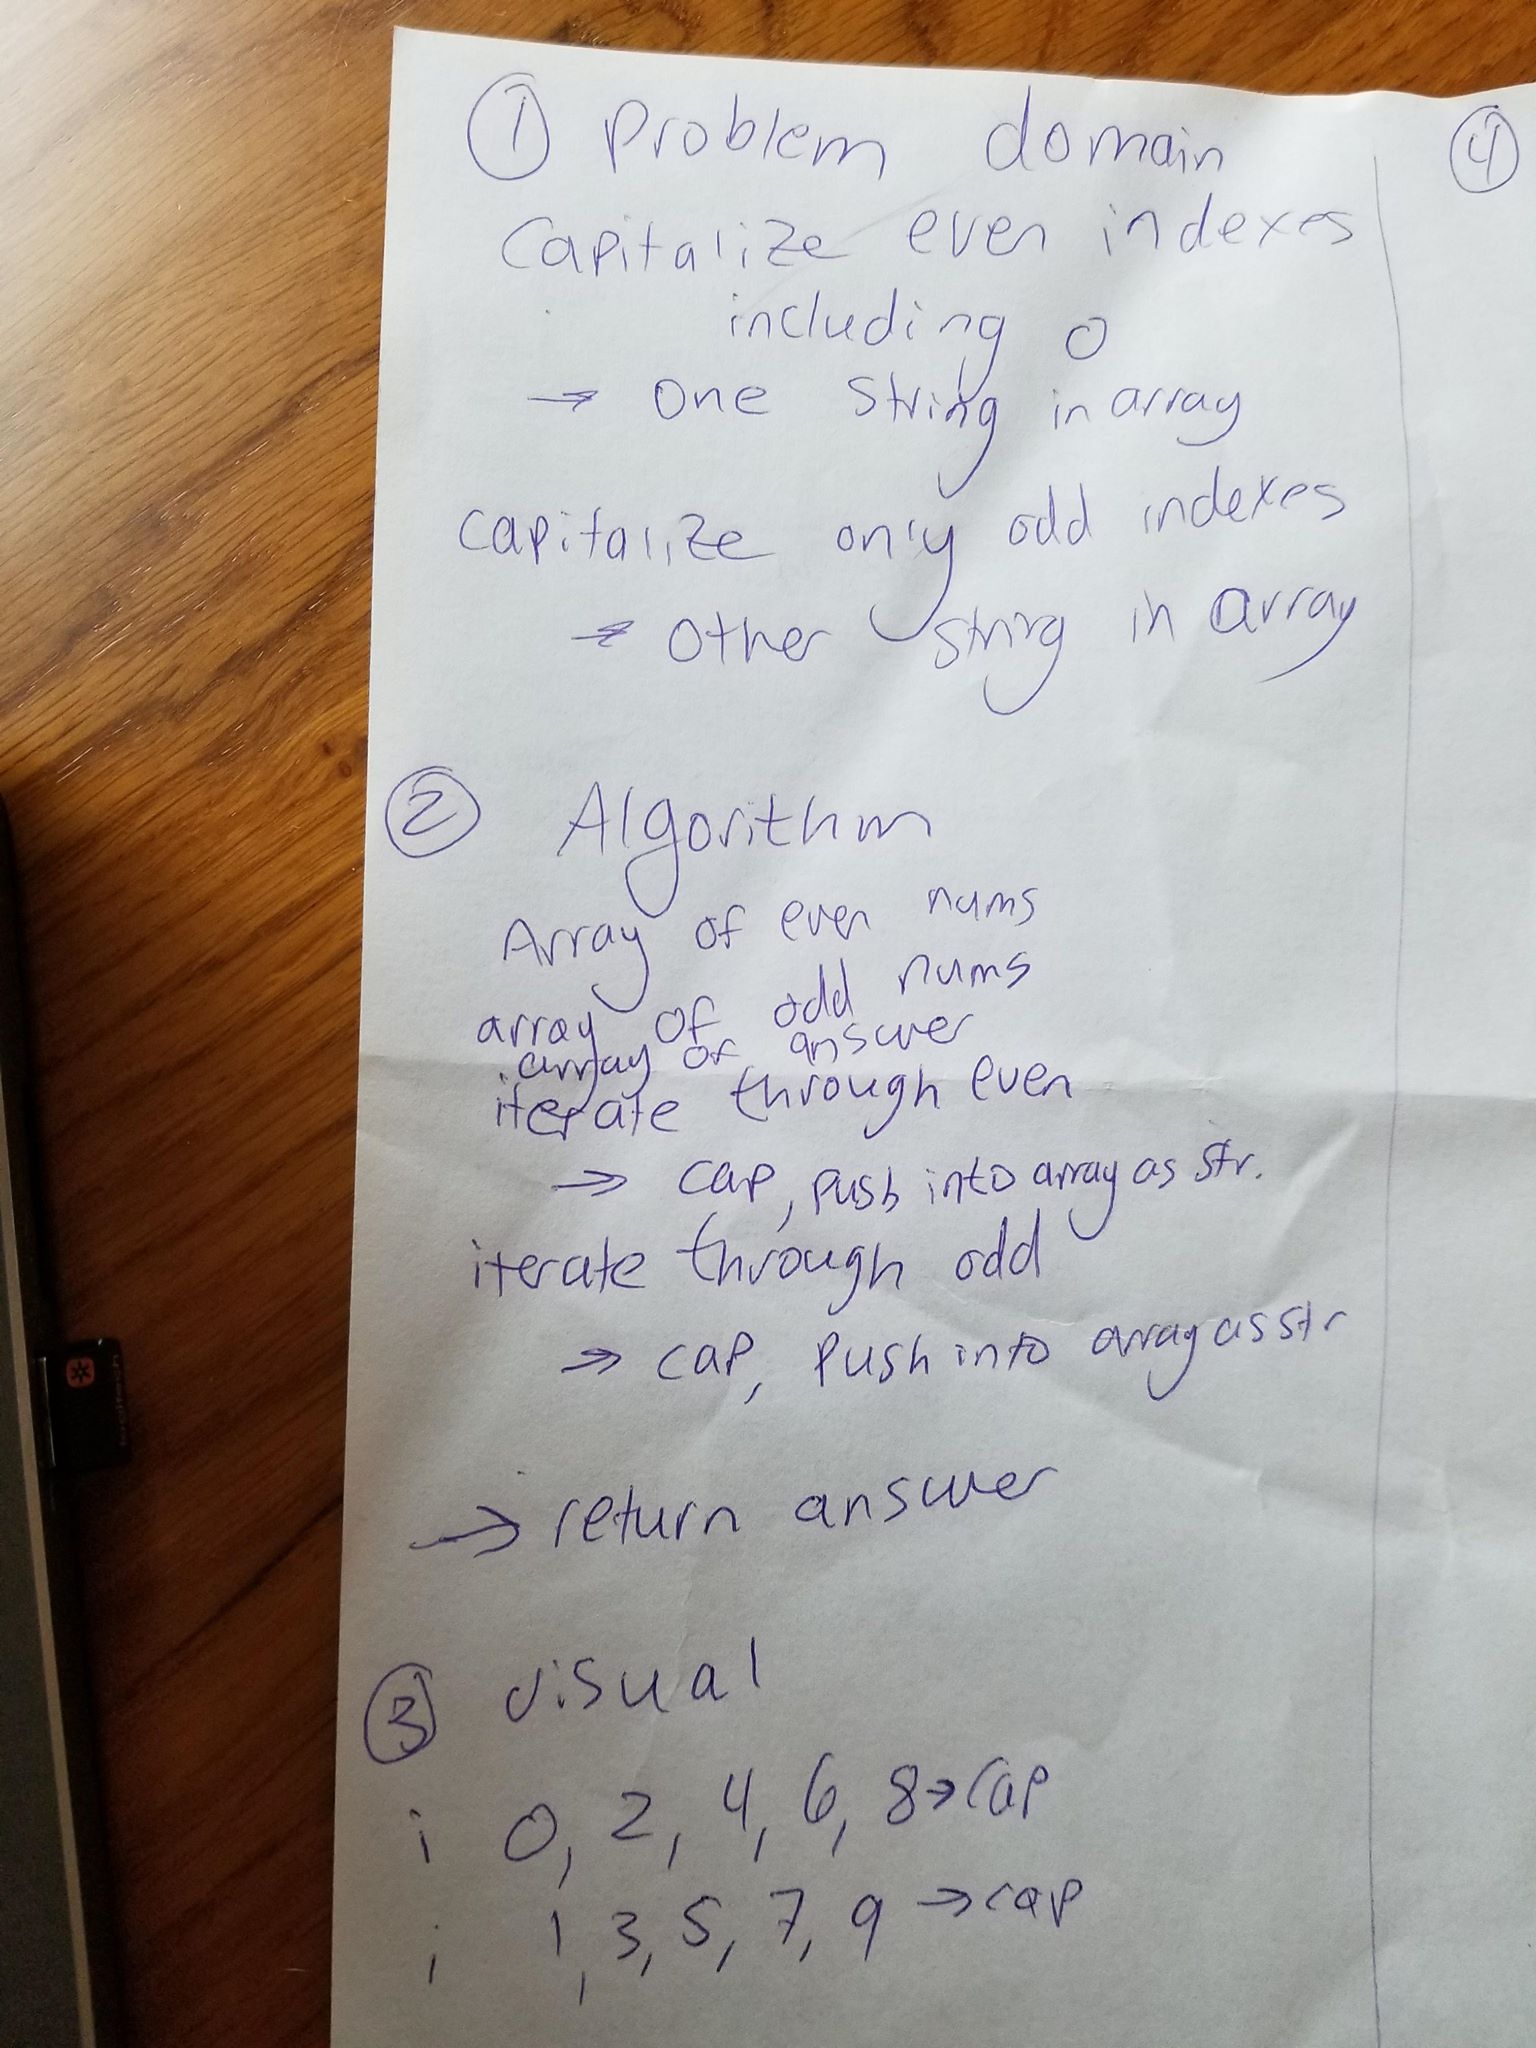 ① Problem domain
Capitalize even indexes
including 0
→ one string in array
capitalize only odd indexes
→ other string in array
② Algorithm
Array of even nums
array of odd nums
array of answer
iterate through even
→ cap, push into array as str.
iterate through odd
→ cap, push into array as str
→ return answer
③ visual
i 0, 2, 4, 6, 8 → cap
i 1, 3, 5, 7, 9 → cap
④